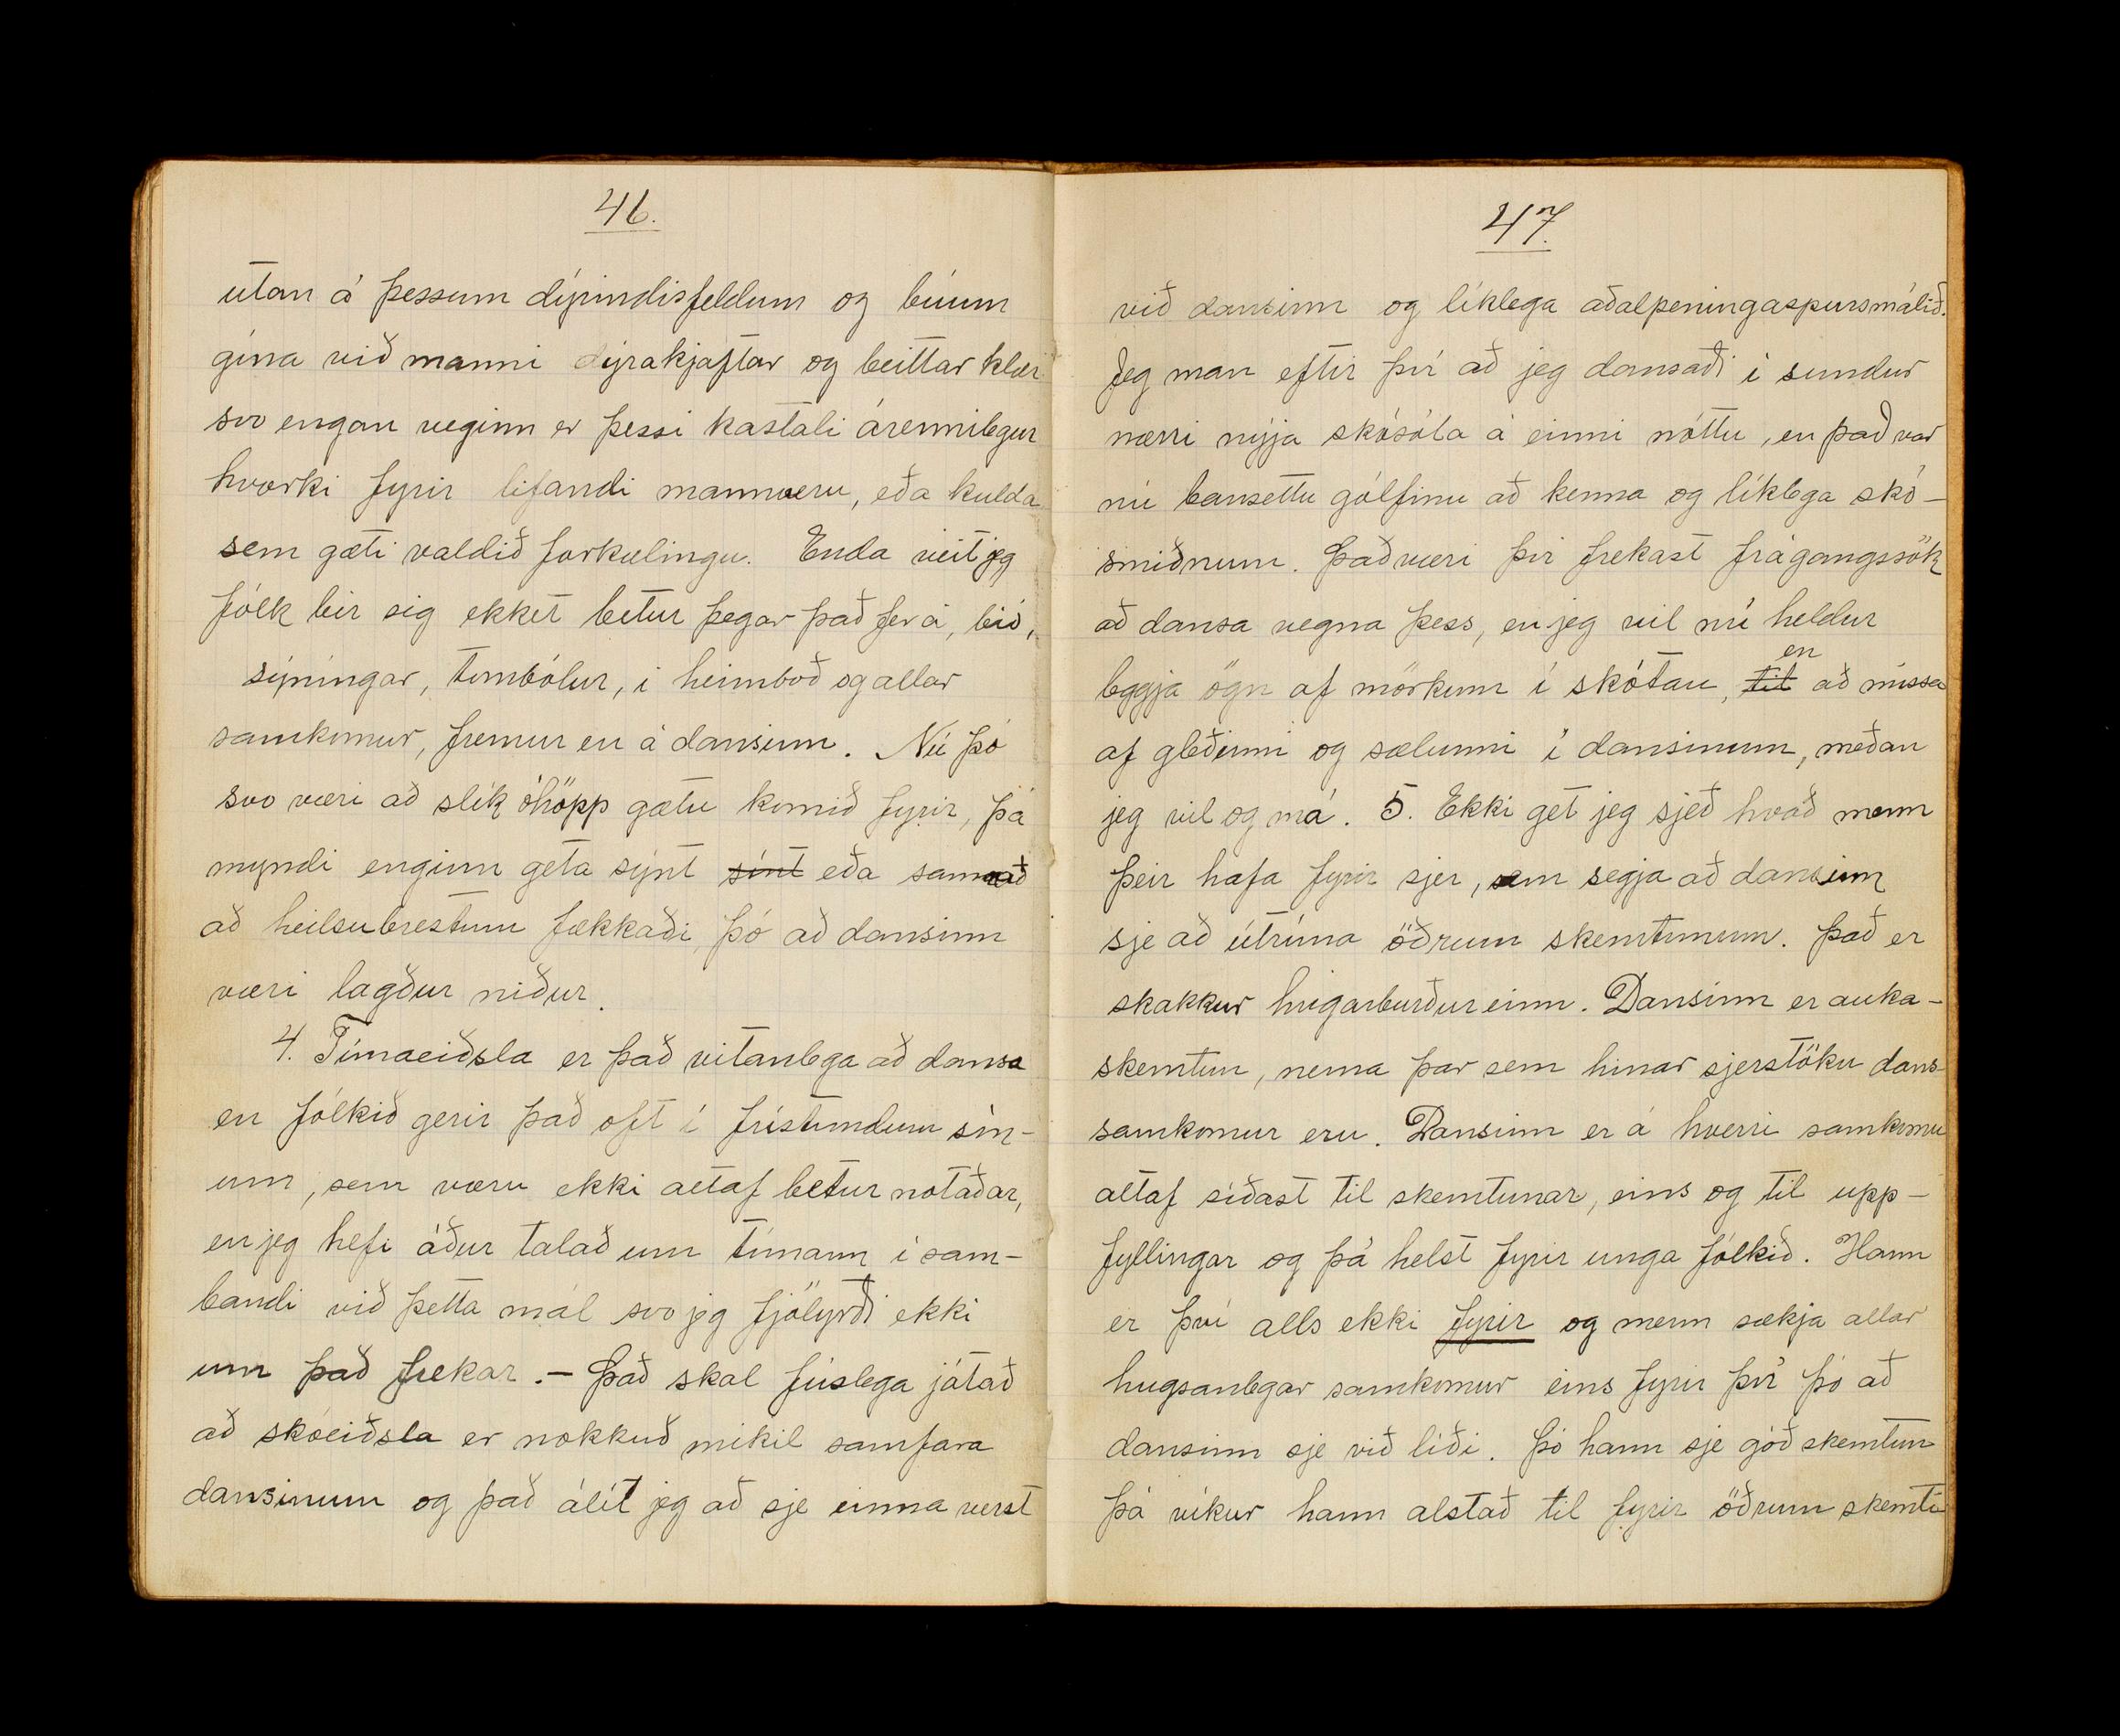 46.
utan á þessum dýrindisfeldum og búum
gína við manni dýrakjaftar og beittar klær
svo engan veginn er þessi kastali árennilegur
hvorki fyrir lifandi mannveru, eða kulda
sem gæti valdið forkælingu. Enda veit jeg
fólk bír sig ekket betur þegar það fer á, bíó,
sýningar, tombólur, í heimboð og allar
samkomur, fremur en á dansinn. Nú þó
svo væri að slík óhöpp gætu komið fyrir, þá
myndi enginn geta sýnt sínt eða sannað
að heilsubrestum fækkaði, þó að dansinn
væri lagður niður.
4. Tímaeiðsla er það vitanlega að dansa
en fólkið gerir það oft í frístundum sín-
um, sem væru ekki altaf betur notaðar,
en jeg hefi áður talað um tímann í sam-
bandi við þetta mál svo jeg fjölyrði ekki
um það frekar. - Það skal fúslega játað
að skóeiðsla er nokkuð mikil samfara
dansinum og það álít jeg að sje einna verst
47.
við dansinn og líklega aðalpeningaspursmálið.
Jeg man eftir því að jeg dansaði í sundur
nærri nýja skósóla á einni nóttu, en það var
nú bansettu gólfinu að kenna og líklega skó-
smiðnum. Það væri því frekast frágangssök
að dansa vegna þess, en jeg vil nú heldur
leggja ögn af mörkum í skótau, til en að missa
af gleðinni og sælunni í dansinum, meðan
jeg vil og má. 5. Ekki get jeg sjeð hvað menn
þeir hafa fyrir sjer, sem segja að dansinn
sje að útríma öðrum skemtunum. Það er
skakkur hugarburður einn. Dansinn er auka-
skemtun, nema þar sem hinar sjerstöku dans-
samkomur eru. Dansinn er á hverri samkomu
altaf síðast til skemtunar, eins og til upp-
fyllingar og þá helst fyrir unga fólkið. Hann
er því alls ekki fyrir og menn sækja allar
hugsanlegar samkomur eins fyrir því þó að
dansinn sje við líði. Þó hann sje góð skemtun
þá víkur hann alstað til fyrir öðrum skemti